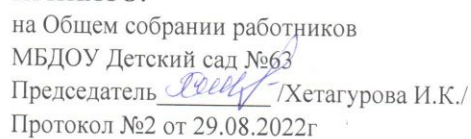 на Общем собрании работников
МБДОУ Детский сад №63
Председатель__________ /Хетагурова И.К./
Протокол №2 от 29.08.2022г